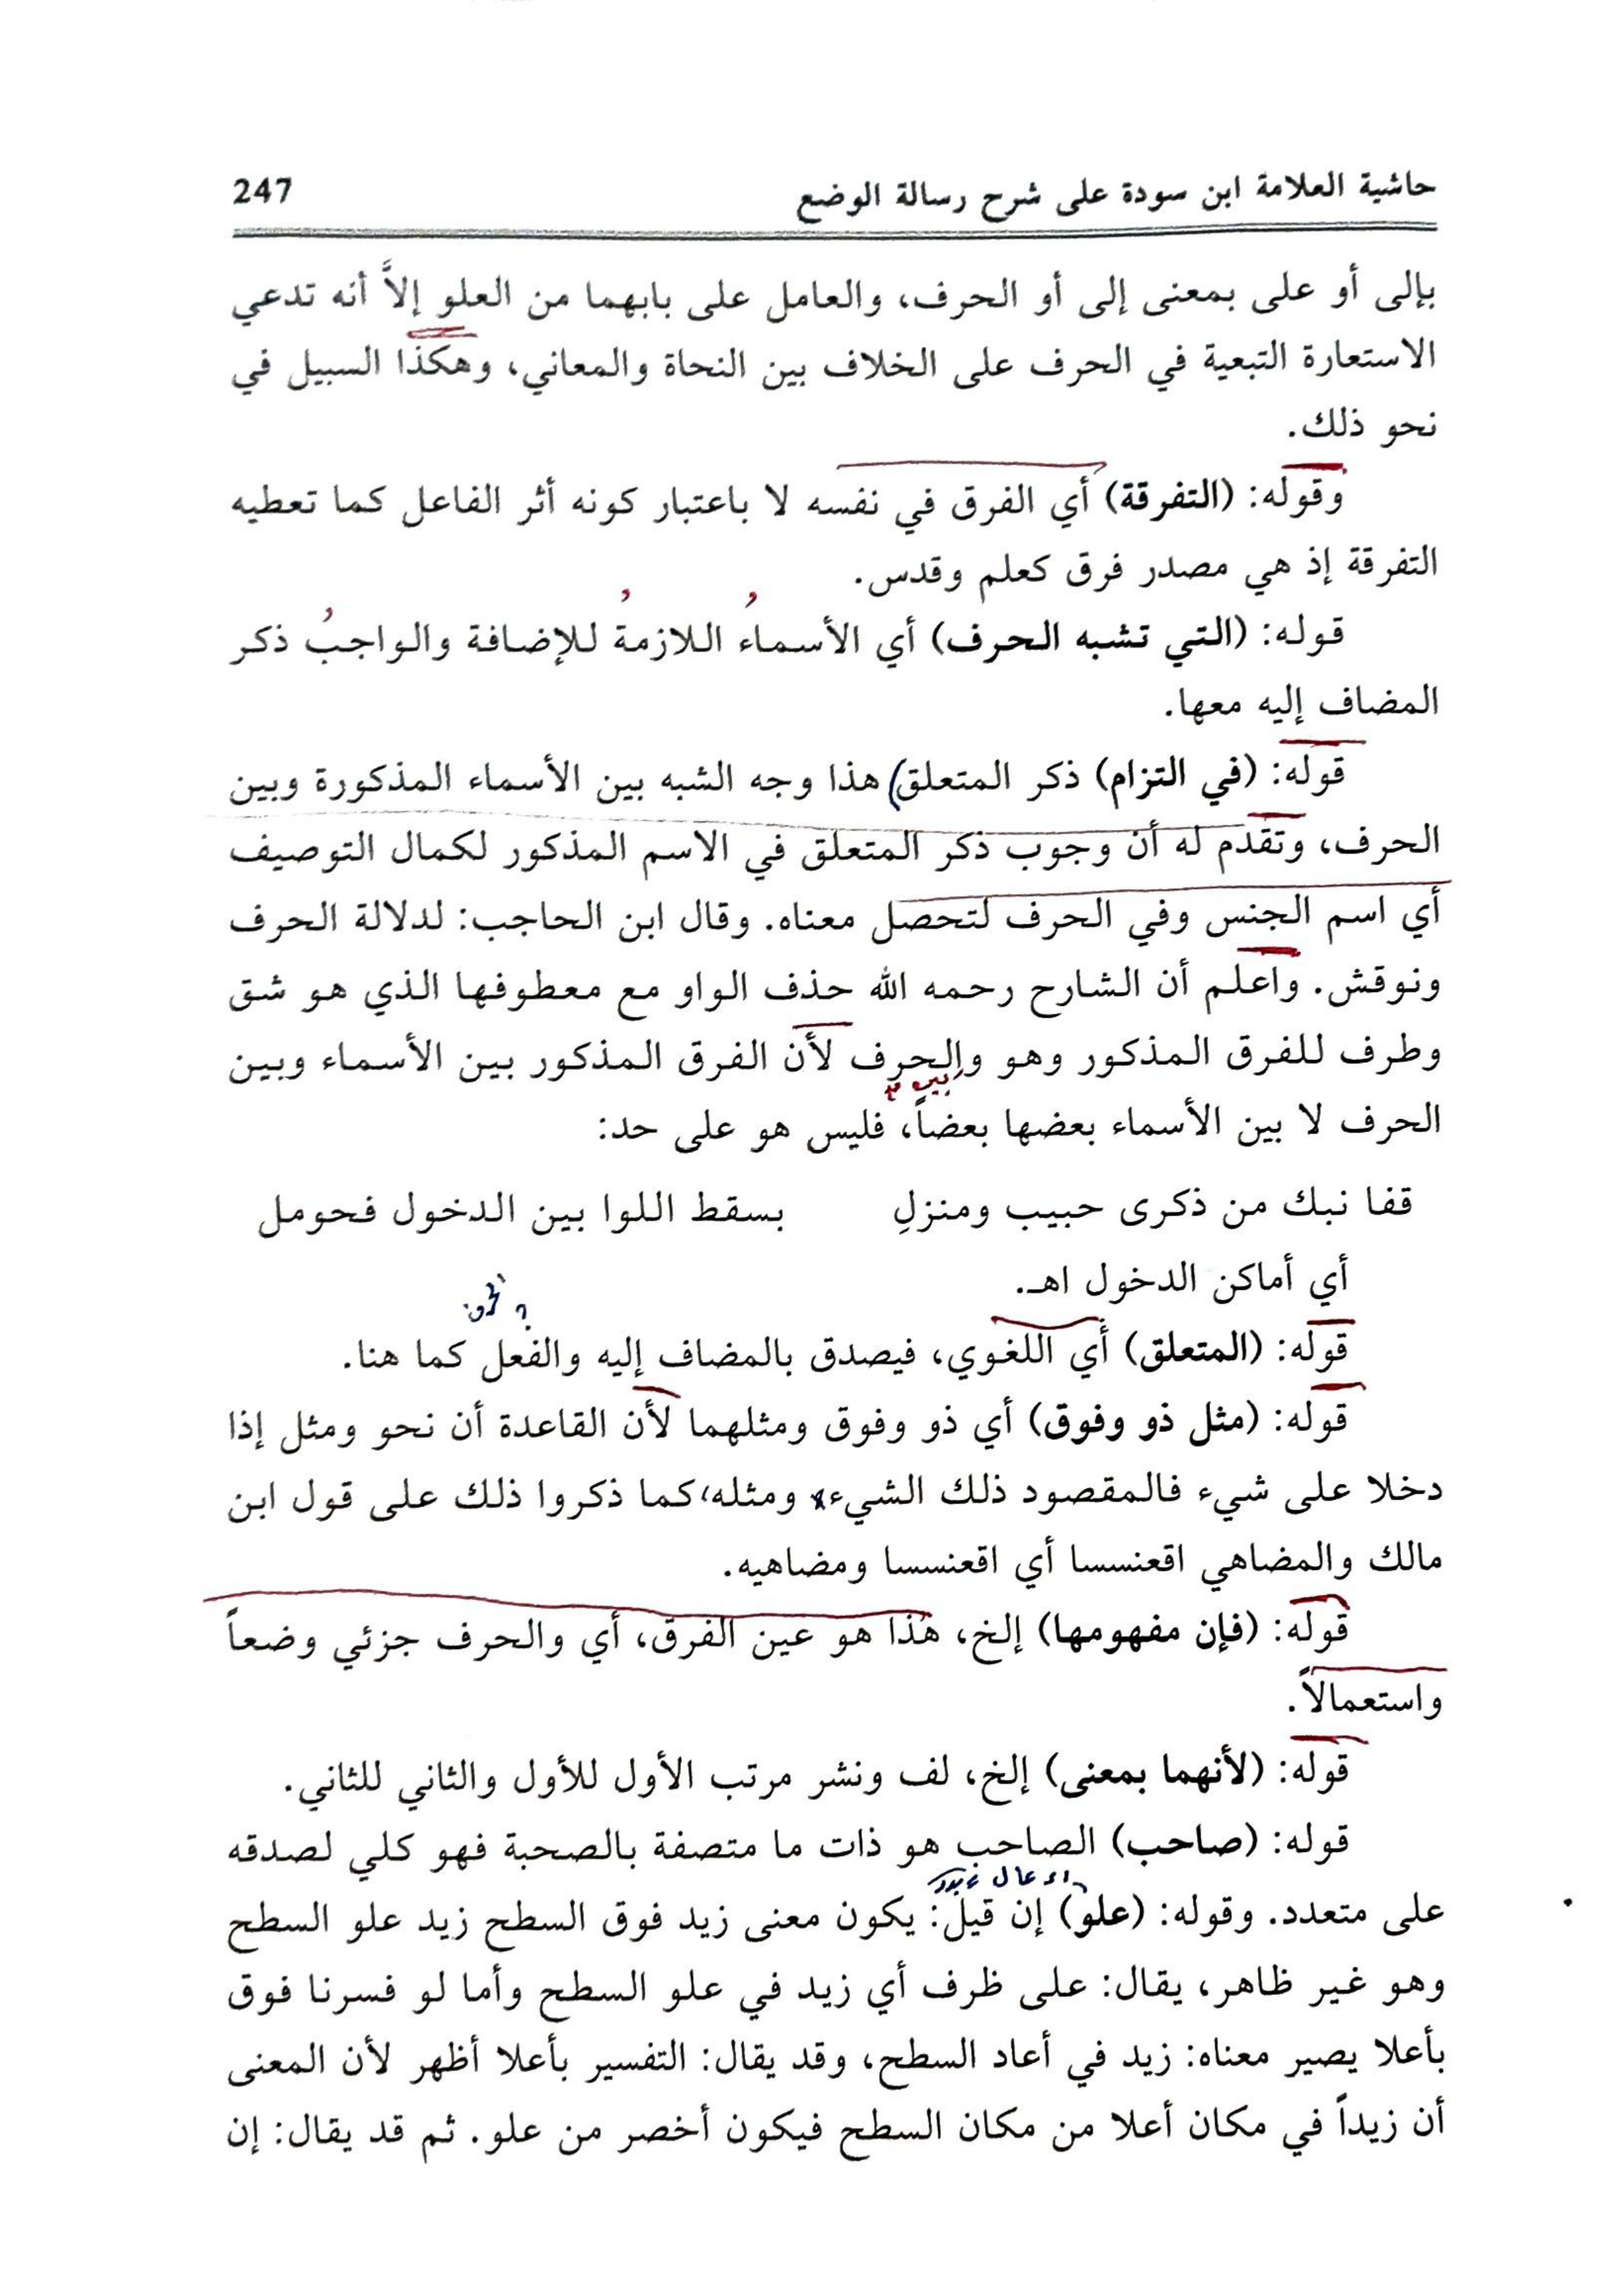 حاشية العلامة ابن سودة على شرح رسالة الوضع 247
بإلى أو على بمعنى إلى أو الحرف، والعامل على بابهما من العلو إلاَّ أنه تدعي
الاستعارة التبعية في الحرف على الخلاف بين النحاة والمعاني، وهكذا السبيل في
نحو ذلك.
وقوله: (التفرقة) أي الفرق في نفسه لا باعتبار كونه أثر الفاعل كما تعطيه
التفرقة إذ هي مصدر فرق كعلم وقدس.
قوله: (التي تشبه الحرف) أي الأسماءُ اللازمةُ للإضافة والواجبُ ذكر
المضاف إليه معها.
قوله: (في التزام) ذكر المتعلق) هذا وجه الشبه بين الأسماء المذكورة وبين
الحرف، وتقدم له أن وجوب ذكر المتعلق في الاسم المذكور لكمال التوصيف
أي اسم الجنس وفي الحرف لتحصل معناه. وقال ابن الحاجب: لدلالة الحرف
ونوقش. واعلم أن الشارح رحمه الله حذف الواو مع معطوفها الذي هو شق
وطرف للفرق المذكور وهو والحرف لأن الفرق المذكور بين الأسماء وبين
الحرف لا بين الأسماء بعضها بعضاً، فليس هو على حد:
قفا نبك من ذكرى حبيب ومنزلِ بسقط اللوا بين الدخول فحومل
أي أماكن الدخول اهـ.
قوله: (المتعلق) أي اللغوي، فيصدق بالمضاف إليه والفعل كما هنا.
قوله: (مثل ذو وفوق) أي ذو وفوق ومثلهما لأن القاعدة أن نحو ومثل إذا
دخلا على شيء فالمقصود ذلك الشيء ومثله، كما ذكروا ذلك على قول ابن
مالك والمضاهي اقعنسسا أي اقعنسسا ومضاهيه.
قوله: (فإن مفهومها) إلخ، هذا هو عين الفرق، أي والحرف جزئي وضعاً
واستعمالاً.
قوله: (لأنهما بمعنى) إلخ، لف ونشر مرتب الأول للأول والثاني للثاني.
قوله: (صاحب) الصاحب هو ذات ما متصفة بالصحبة فهو كلي لصدقه
على متعدد. وقوله: (علو) إن قيل: يكون معنى زيد فوق السطح زيد علو السطح
وهو غير ظاهر، يقال: على ظرف أي زيد في علو السطح وأما لو فسرنا فوق
بأعلا يصير معناه: زيد في أعاد السطح، وقد يقال: التفسير بأعلا أظهر لأن المعنى
أن زيداً في مكان أعلا من مكان السطح فيكون أخصر من علو. ثم قد يقال: إن